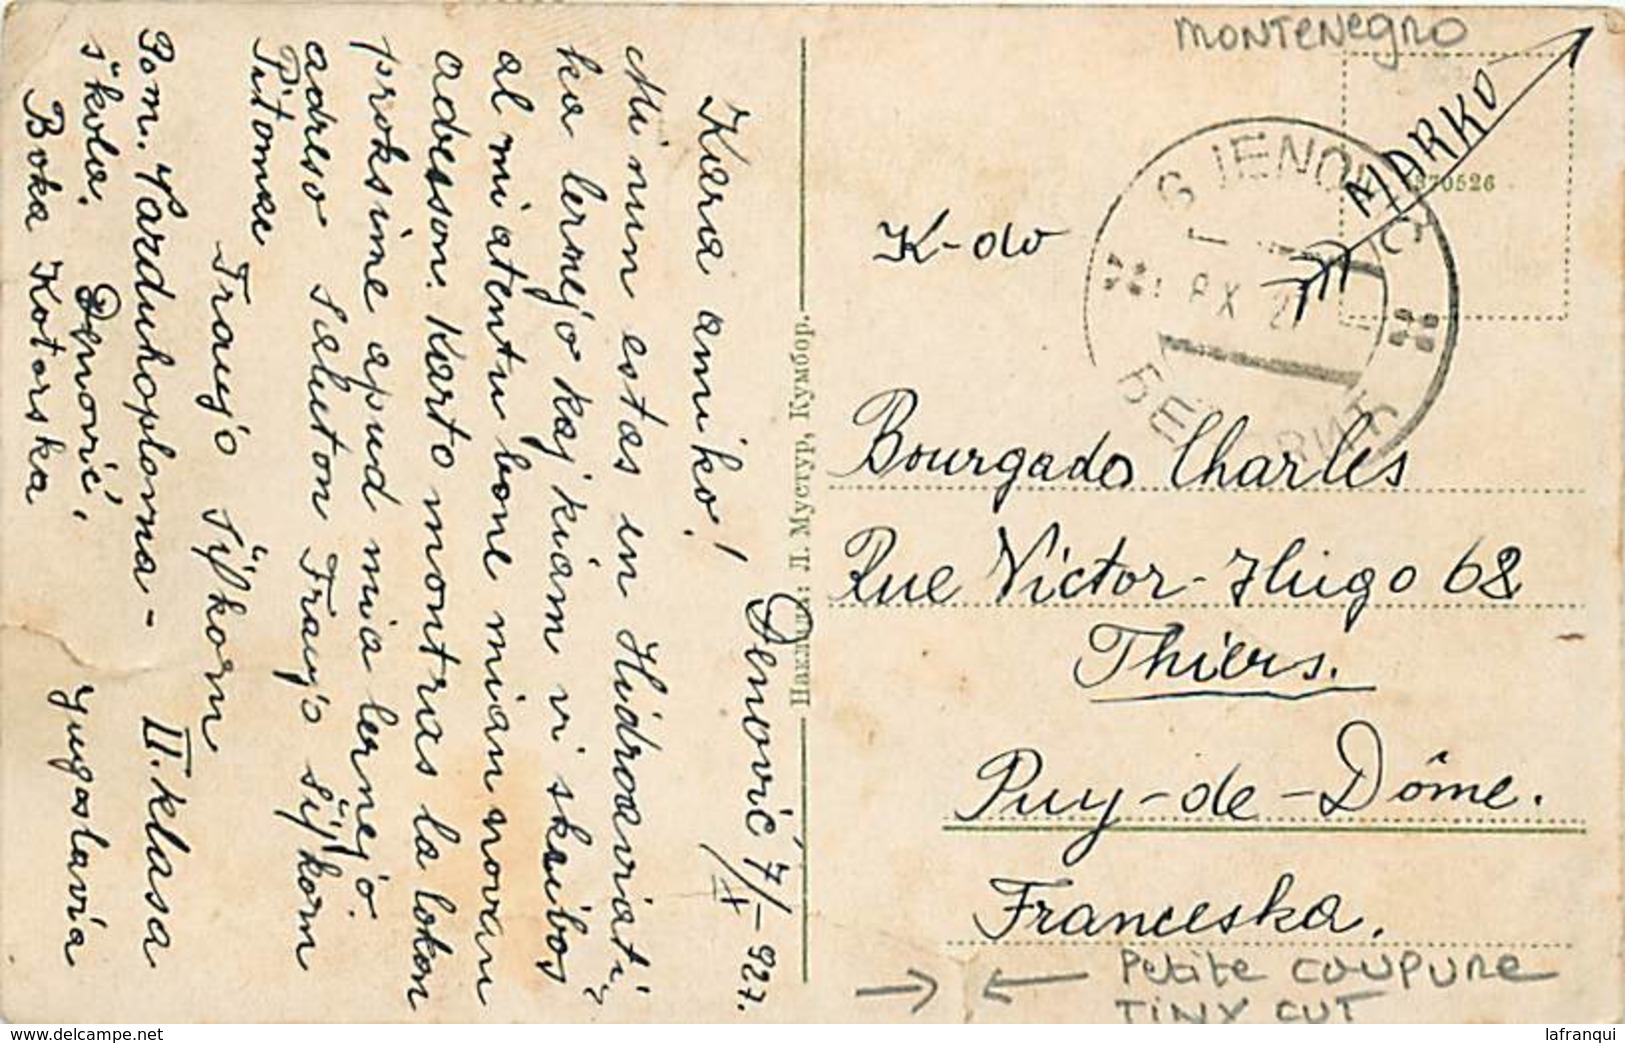 Kara amiko! Denović 7/X-927.
Mi nun estas en Hidroaviati-
ka lernejo kaj kiam vi skribos
al mi atentu bone mian novan
adreson. Karto montras la lokon
proksime apud mia lernejo.
adreso Saluton Franjo Siſkorn
Pitomac
Franjo Siſkorn
Pom. Vazduhoplovna- II. klasa
škola. Denovići,
Boka Kotorska Jugoslavia
Наклада: Л. Мустур, Кумбор.
MONTENEGRO
MARKO
370526
K-do
Bourgado Charles
Rue Victor-Hugo 68
Thiers.
Puy-de-Dôme.
Franceska.
Petite coupure
TINY CUT
lafranqui